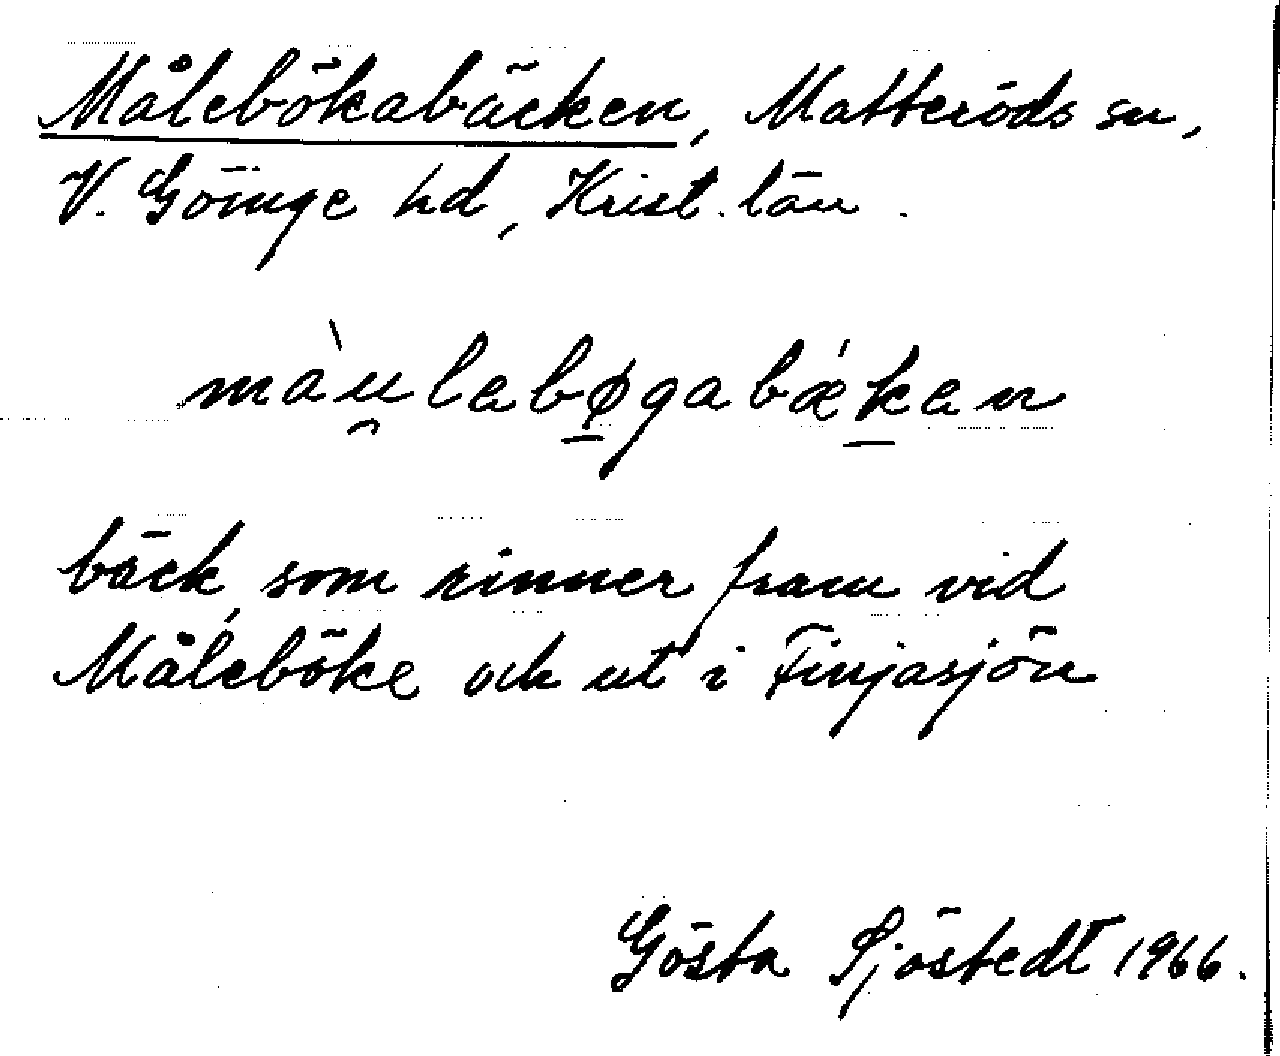 Målebökabäcken, Matteröds sn,
V. Göinge hd, Krist. län.
màu̯labø̱gabǽḵan
bäck, som rinner fram vid
Måleböke och ut i Finjasjön
Gösta Sjöstedt 1966.